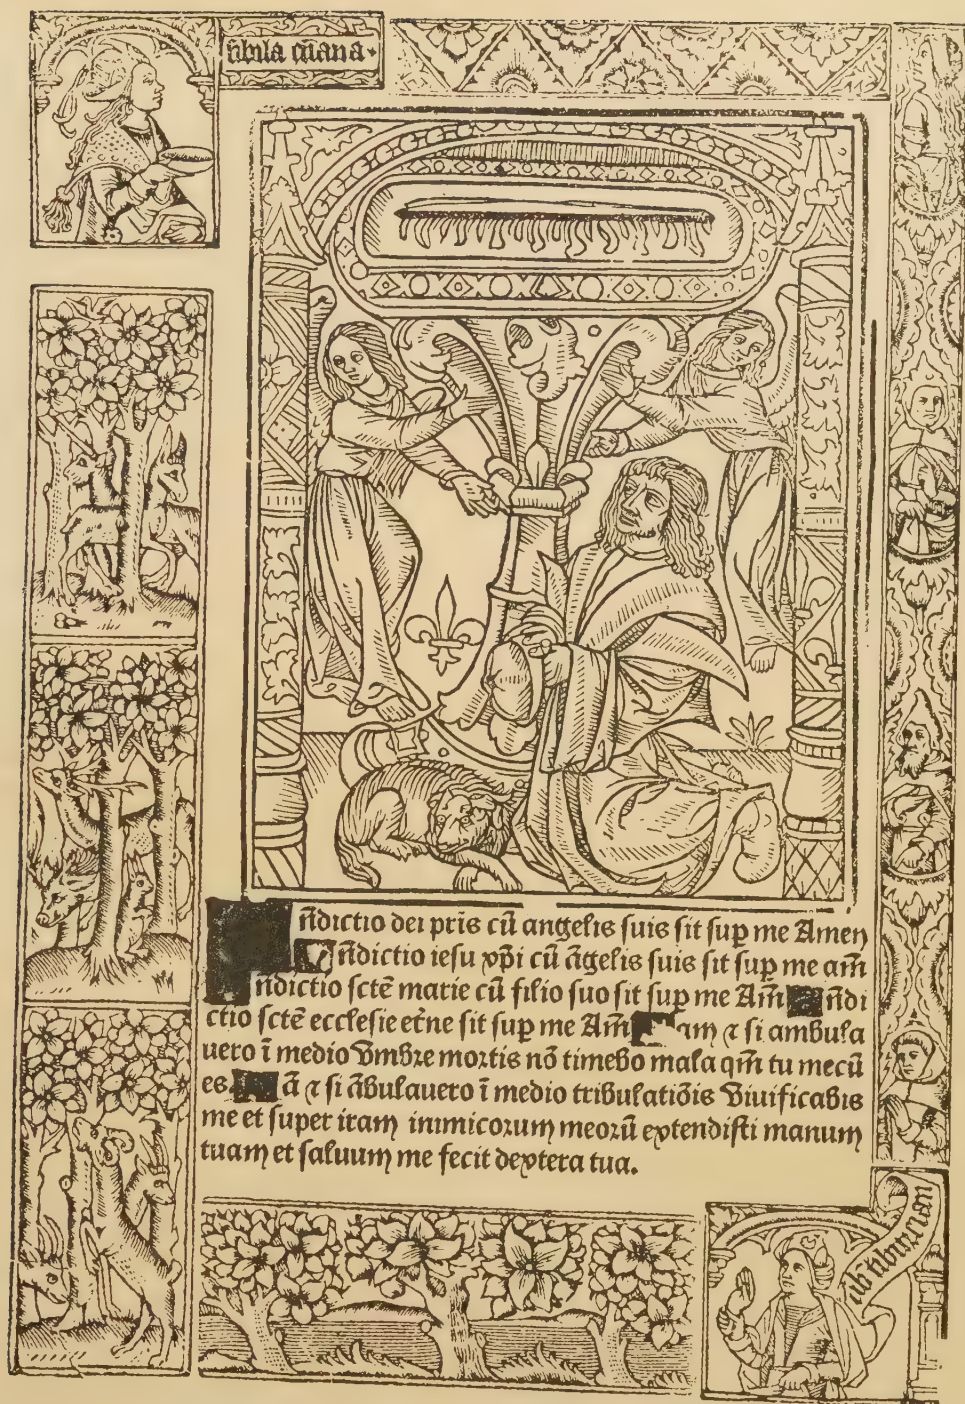 sibila cūana
n̄dictio dei pr̄is cū angelis suis sit sup̱ me Amen
n̄dictio iesu xp̄i cū āgelis suis sit sup̱ me am̄
n̄dictio sctē marie cū filio suo sit sup̱ me Am̄ n̄di
ctio sctē ecclesie etn̄e sit sup̱ me Am̄ am ⁊ si ambula
uero ī medio vmbre mortis nō timebo mala qm̄ tu mecū
es ā ⁊ si ābulauero ī medio tribulatiōis viuificabis
me et super iram inimicorum meorū extendisti manum
tuam et saluum me fecit dextera tua.